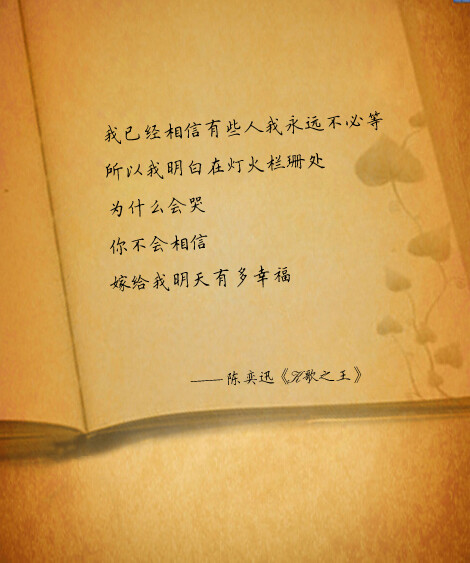 我已经相信有些人我永远不必等
所以我明白在灯火栏珊处
为什么会哭
你不会相信
嫁给我明天有多幸福
——陈奕迅《K歌之王》